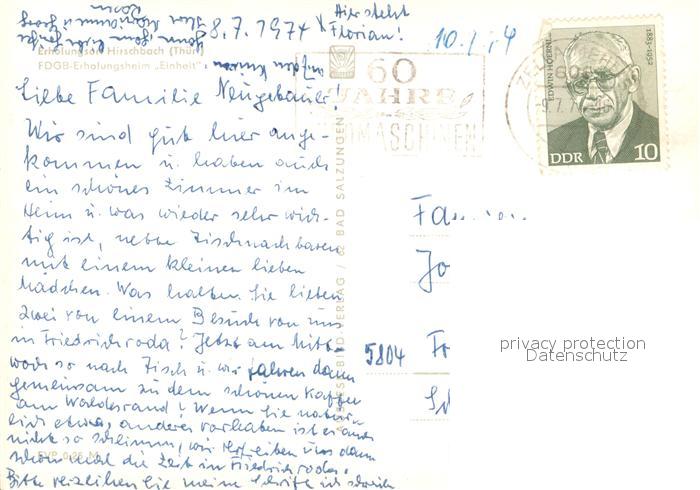 Hier steht
Florian!
8.7.1974
Erholungsort Hirschbach (Thür)
FDGB-Erholungsheim „Einheit"
Liebe Familie Neugebauer!
Wir sind gut hier ange-
kommen u. haben auch
ein schönes Zimmer im
Heim u. was wieder sehr wich-
tig ist, nette Tischnachbaren
mit einem kleinen lieben
Mädchen. Was halten Sie lieben
zwei von einem Besuch von uns
in Friedrichroda? Jetzt am Mitt-
woch so nach Tisch u. wir fahren dann
gemeinsam zu dem schönen Kaffee
am Waldesrand? Wenn Sie natür-
lich etwas anderes vorhaben ist es auch
nicht so schlimm, wir vertreiben uns dann
schon mal die Zeit in Friedrichroda.
Bitte verzeihen Sie meine Schrift ich schreib
auf den Knien
EVP 0,25 M
VERLAG / 62 BAD SALZUNGEN
60
JAHRE
9.7.7
EDWIN HOERNLE
1883-1952
DDR 10
Fa
Jo
5804 Fr
privacy protection
Datenschutz